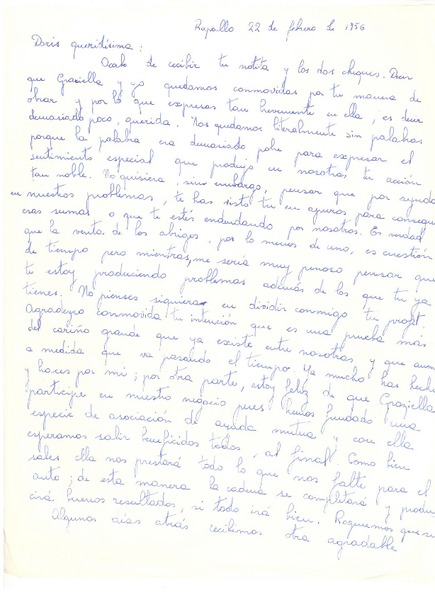 Rapallo 22 de febrero de 1956
Doris queridísima:
Acabo de recibir tu notita y los dos cheques. Decir
que Graziella y yo quedamos conmovidas por tu manera de
obrar y por lo que expresas tan brevemente en ella, es decir
demasiado poco, querida. Nos quedamos literalmente sin palabras
porque la palabra era demasiado pobre para expresar el
sentimiento especial que produjo en nosotras tu acción
tan noble. No quisiera, sin embargo, pensar que por ayudar
en nuestros problemas, te has visto tu en apuros para conseguir
esas sumas o que te estés endeudando por nosotros. Es verdad
que la venta de los abrigos, por lo menos de uno, es cuestión
de tiempo pero mientras, me sería muy penoso pensar que
te estoy produciendo problemas además de los que tu ya
tienes. No pienses siquiera en dividir conmigo tu profit.
Agradezco conmovida tu intención que es una prueba más
del cariño grande que ya existe entre nosotras y que aumenta
a medida que va pasando el tiempo. Ya mucho has hecho
y haces por mi; por otra parte, estoy feliz de que Graziella
participe en nuestro negocio pues hemos fundado una
especie de asociación de ayuda mutua y con ella
esperamos salir beneficiados todos, al final. Como bien
sabes ella nos prestará todo lo que nos falte para el
auto; de esta manera la cadena se completará y producirá
buenos resultados, si todo irá bien. Roguemos que
Algunos días atrás recibimos otra agradable